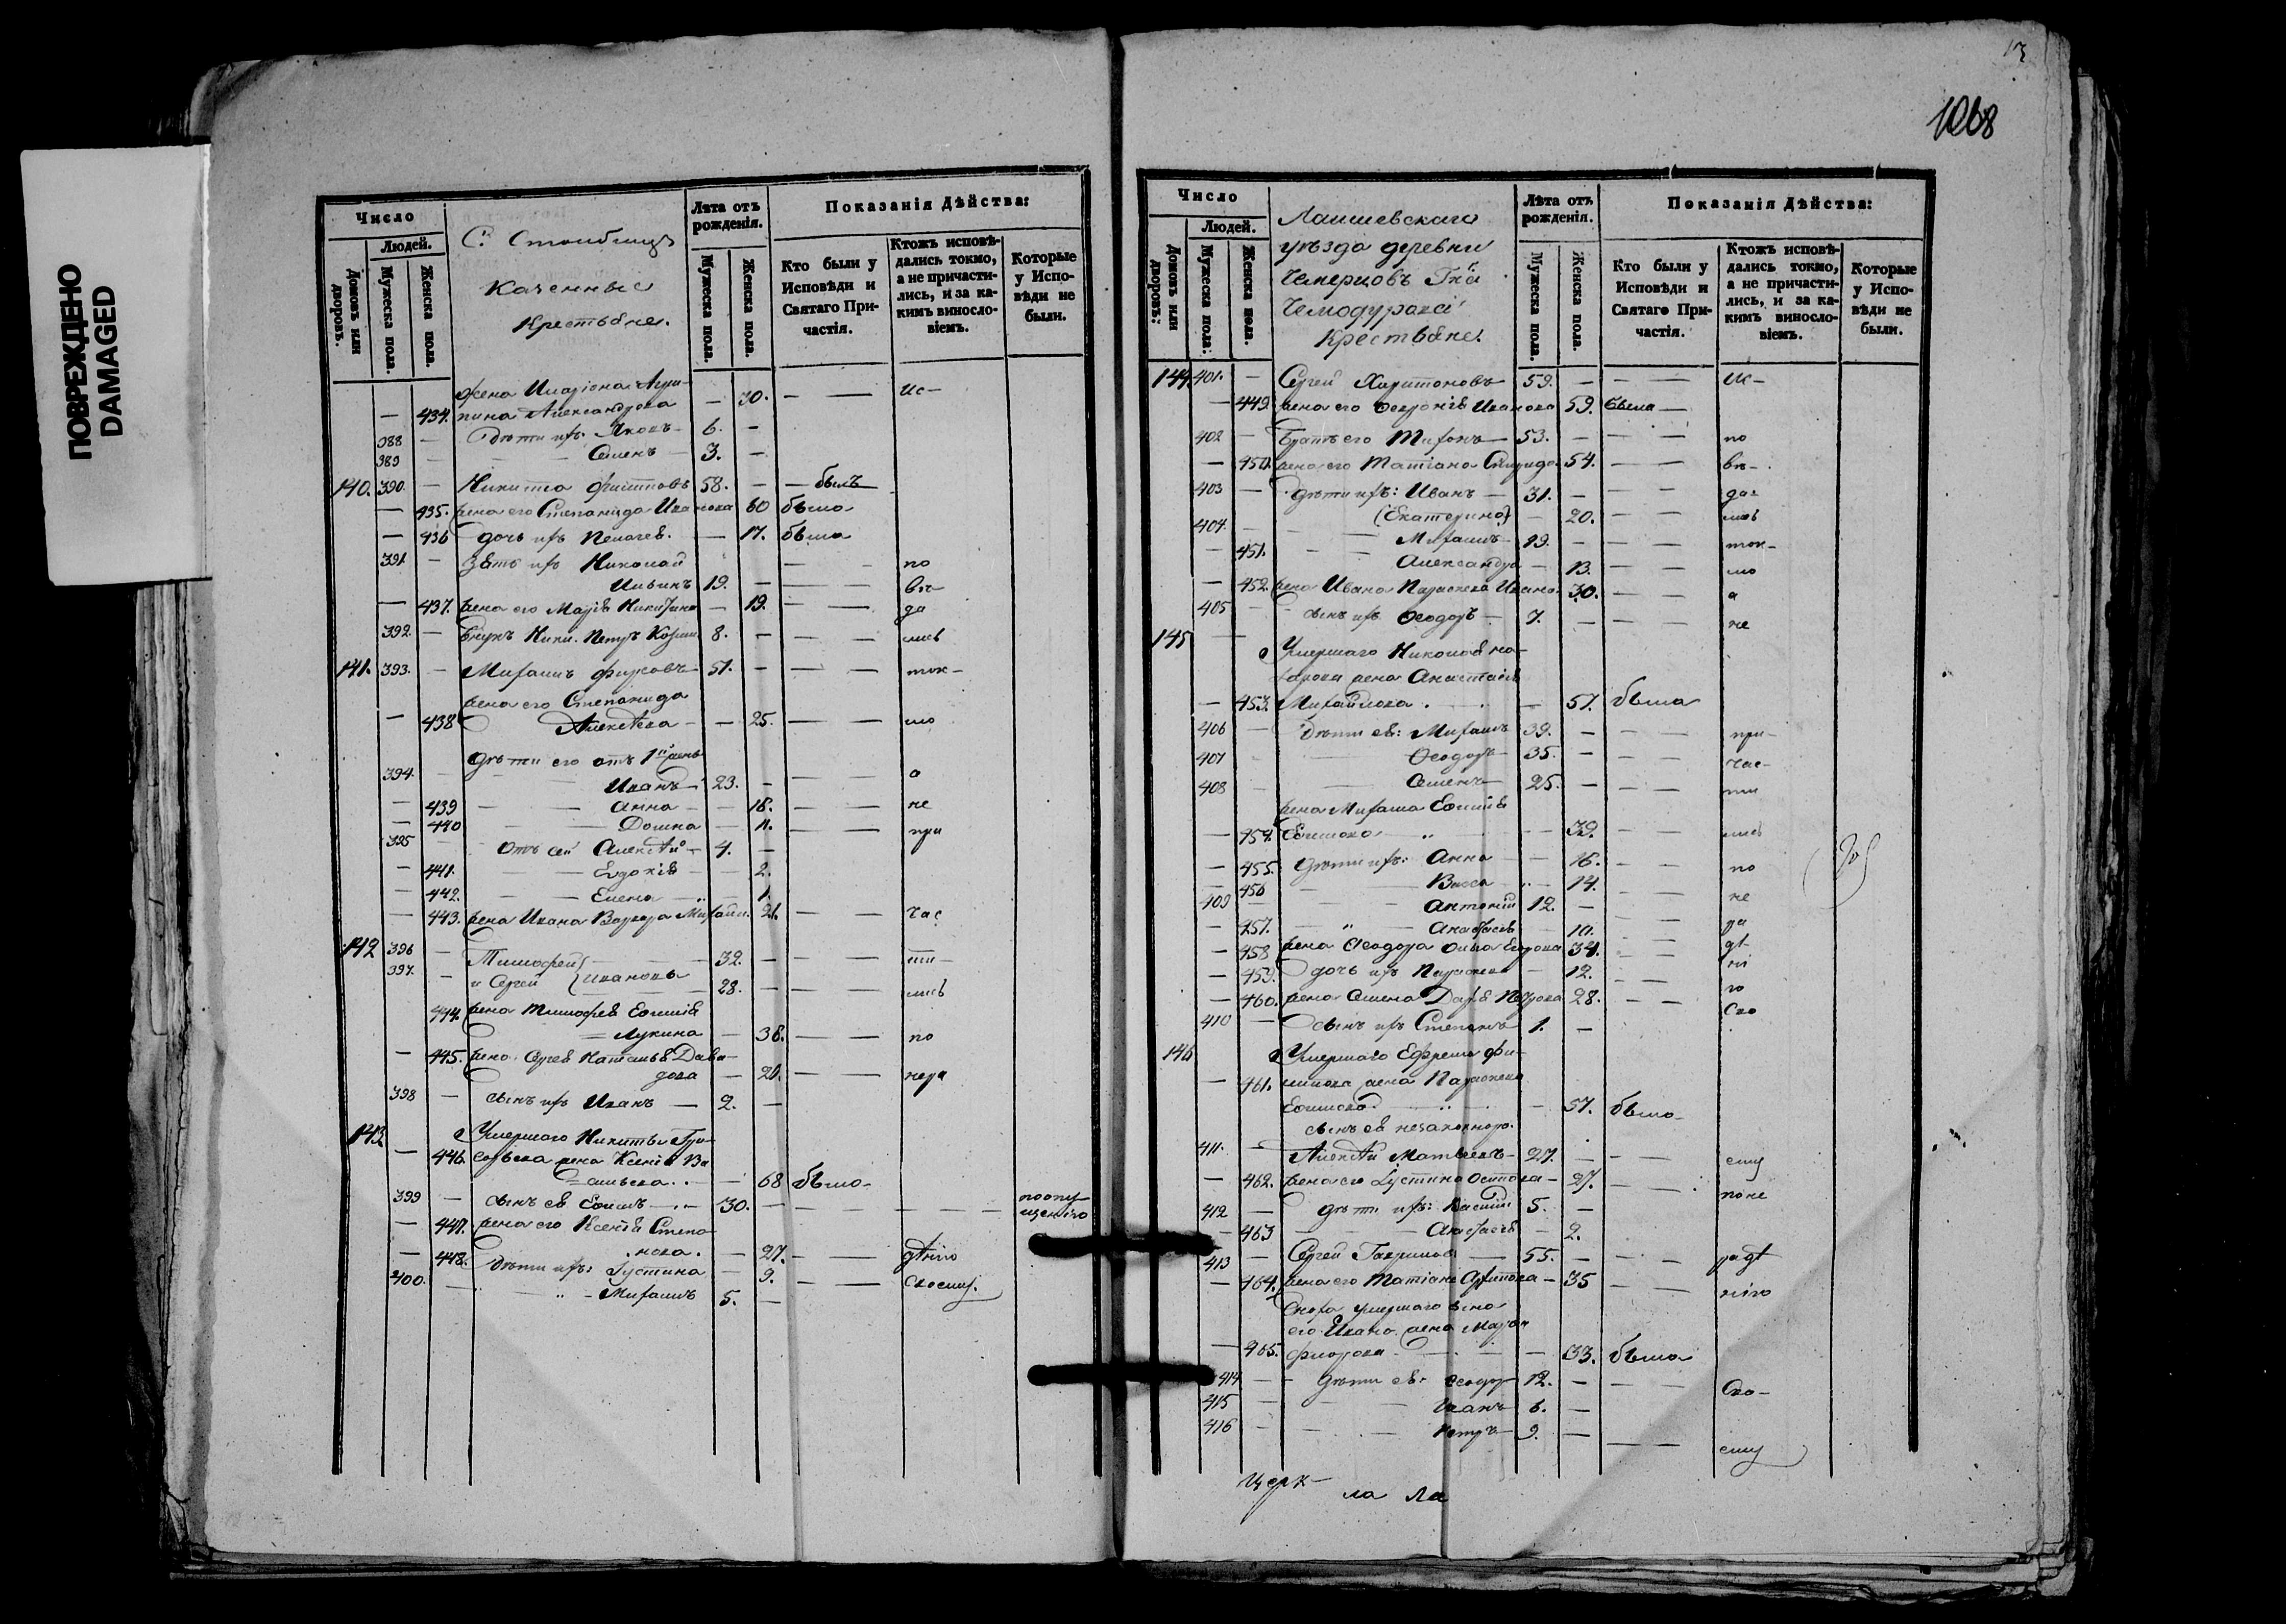 ПОВРЕЖДЕНО
DAMAGED
13
1068
Число
Людей.
Домовъ или дворовъ.
Мужеска пола.
Женска пола.
С. Столбищъ
Казенные
Крестьяне.
Лѣта отъ рожденія.
Мужеска пола.
Женска пола.
Показанія Дѣйства:
Кто были у Исповѣди и Святаго Причастія.
Ктожъ исповѣ-
дались токмо,
а не причасти-
лись, и за ка-
кимъ виносло-
віемъ.
Которые
у Испо-
вѣди не
были.
жена Иларіона Агри- 30. — — ис-
— 434. пина Александрова
388 — дѣти ихъ: Яковъ 6. —
389 — Семенъ 3. —
140. 390. — Никита 58. — — былъ
— 435. жена его Степанида Иванова 60 была
— 436 дочь ихъ Пелагея. — 17. была
391. — Зять ихъ Николай — — по
Ильинъ 19. — — — вѣ-
— 437. жена его Марія Никитина — 19. — — да
392. — Внукъ Петръ 8. — — — лись
141. 393. — Михаилъ 51. — — — ток-
жена его Степанида
— 438 Алексѣева — 25. — — мо
дѣти его отъ 1й жены
394. — Иванъ 23. — — — а
— 439 — Анна — 18. — — не
— 440 — Домна — 11. — — при
395 — отъ сей Алексѣй 4. —
— 441. — Евдокія — 2.
— 442. — Елена — 1.
— 443. жена Ивана Варвара Михайл. 21. — — час
142 396 — Тимофей 32. — — — ти-
397. — и Сергей Ивановы 28. — — — лись
444. жена Тимофея Евфимія
Лукина — 38. — — по
— 445. жена Сергея Наталья Давы-
дова — 20. — — нера
398 — сынъ ихъ Иванъ — 2. —
143. Умершаго Никиты Гри-
— 446. горьева жена Ксенія Ва
сильева — 68 была
399 — сынъ ея Ефимъ 30. — — — по опу-
щенію
— 447. жена его Ксенія Степа-
нова. — 27. — — дѣнію
— 448. дѣти ихъ: Іустина — 9. — — своему.
400. — Михаилъ 5. —
Число
Людей.
Домовъ или дворовъ:
Мужеска пола:
Женска пола.
Лаишевскаго
уѣзда деревни
Чемерцовъ
Крестьяне.
Лѣта отъ рожденія.
Мужеска пола.
Женска пола.
Показанія Дѣйства:
Кто были у Исповѣди и Святаго Причастія.
Ктожъ исповѣ-
дались токмо,
а не причасти-
лись, и за ка-
кимъ виносло-
віемъ.
Которые
у Испо-
вѣди не
были.
144. 401. — Сергей Харитоновъ 59. — — — ис-
— 449. жена его Февронія Иванова 59. была —
402 — Братъ его Тихонъ 53. — — — по
— 450. жена его Татіана Спирид. 54. — — вѣ-
403 — дѣти ихъ: Иванъ 31. — да-
(Екатерина) — 20. — — лись
404. — Михаилъ 19. — — — ток-
— 451. — Александра — 13. — — мо
— 452. жена Ивана Параскева Ивано. 30. — — а
405 — сынъ ихъ Ѳеодоръ 7. — — — не
145 — Умершаго Николая
жена Анастасія
— 453. Михайлова — 57. была
406 — дѣти ея: Михаилъ 39. — — — при-
407 — Ѳеодоръ 35. — — — час-
408 — Семенъ 25. — — — ти
жена Михаила Евфимія
— 454. Ефимова — 39. — — лись
— 455. дѣти ихъ: Анна — 16. — — по
— 456 — Васса — 14. — — не
409 — Антоній 12. —
— 457. — Анастасія — 10. — — ра
— 458 жена Ѳеодора Ольга Егорова 34. — — дѣ
— 459. дочь ихъ Параскева — 12. — ні
— 460. жена Семена Дарья Петрова 28. — — ю
410 — сынъ ихъ Степанъ 1. — Сво
146 Умершаго Ефрема Фи-
— 461. липова жена Параскева
Ефимова. — 57. была
сынъ ея незаконнорож.
411. — Алексѣй Матвѣевъ 27. — — — ему
— 462. жена его Іустина Осипова 27. — — по не
412 — дѣти ихъ: Василій 5. —
— 463 — Анастасія — 2.
413 — Сергей Гавриловъ — 55. — — — радѣ
— 464. жена его Татіана Архипова 35 — — нію
Сноха умершаго сына
его Ивана жена Марья
— 465. — 33. была
414 — дѣти ея: Ѳеодор 12. — — — Сво-
415 — Иванъ 6. —
416 — Петръ 9. — — — ему
церк-
ла ла